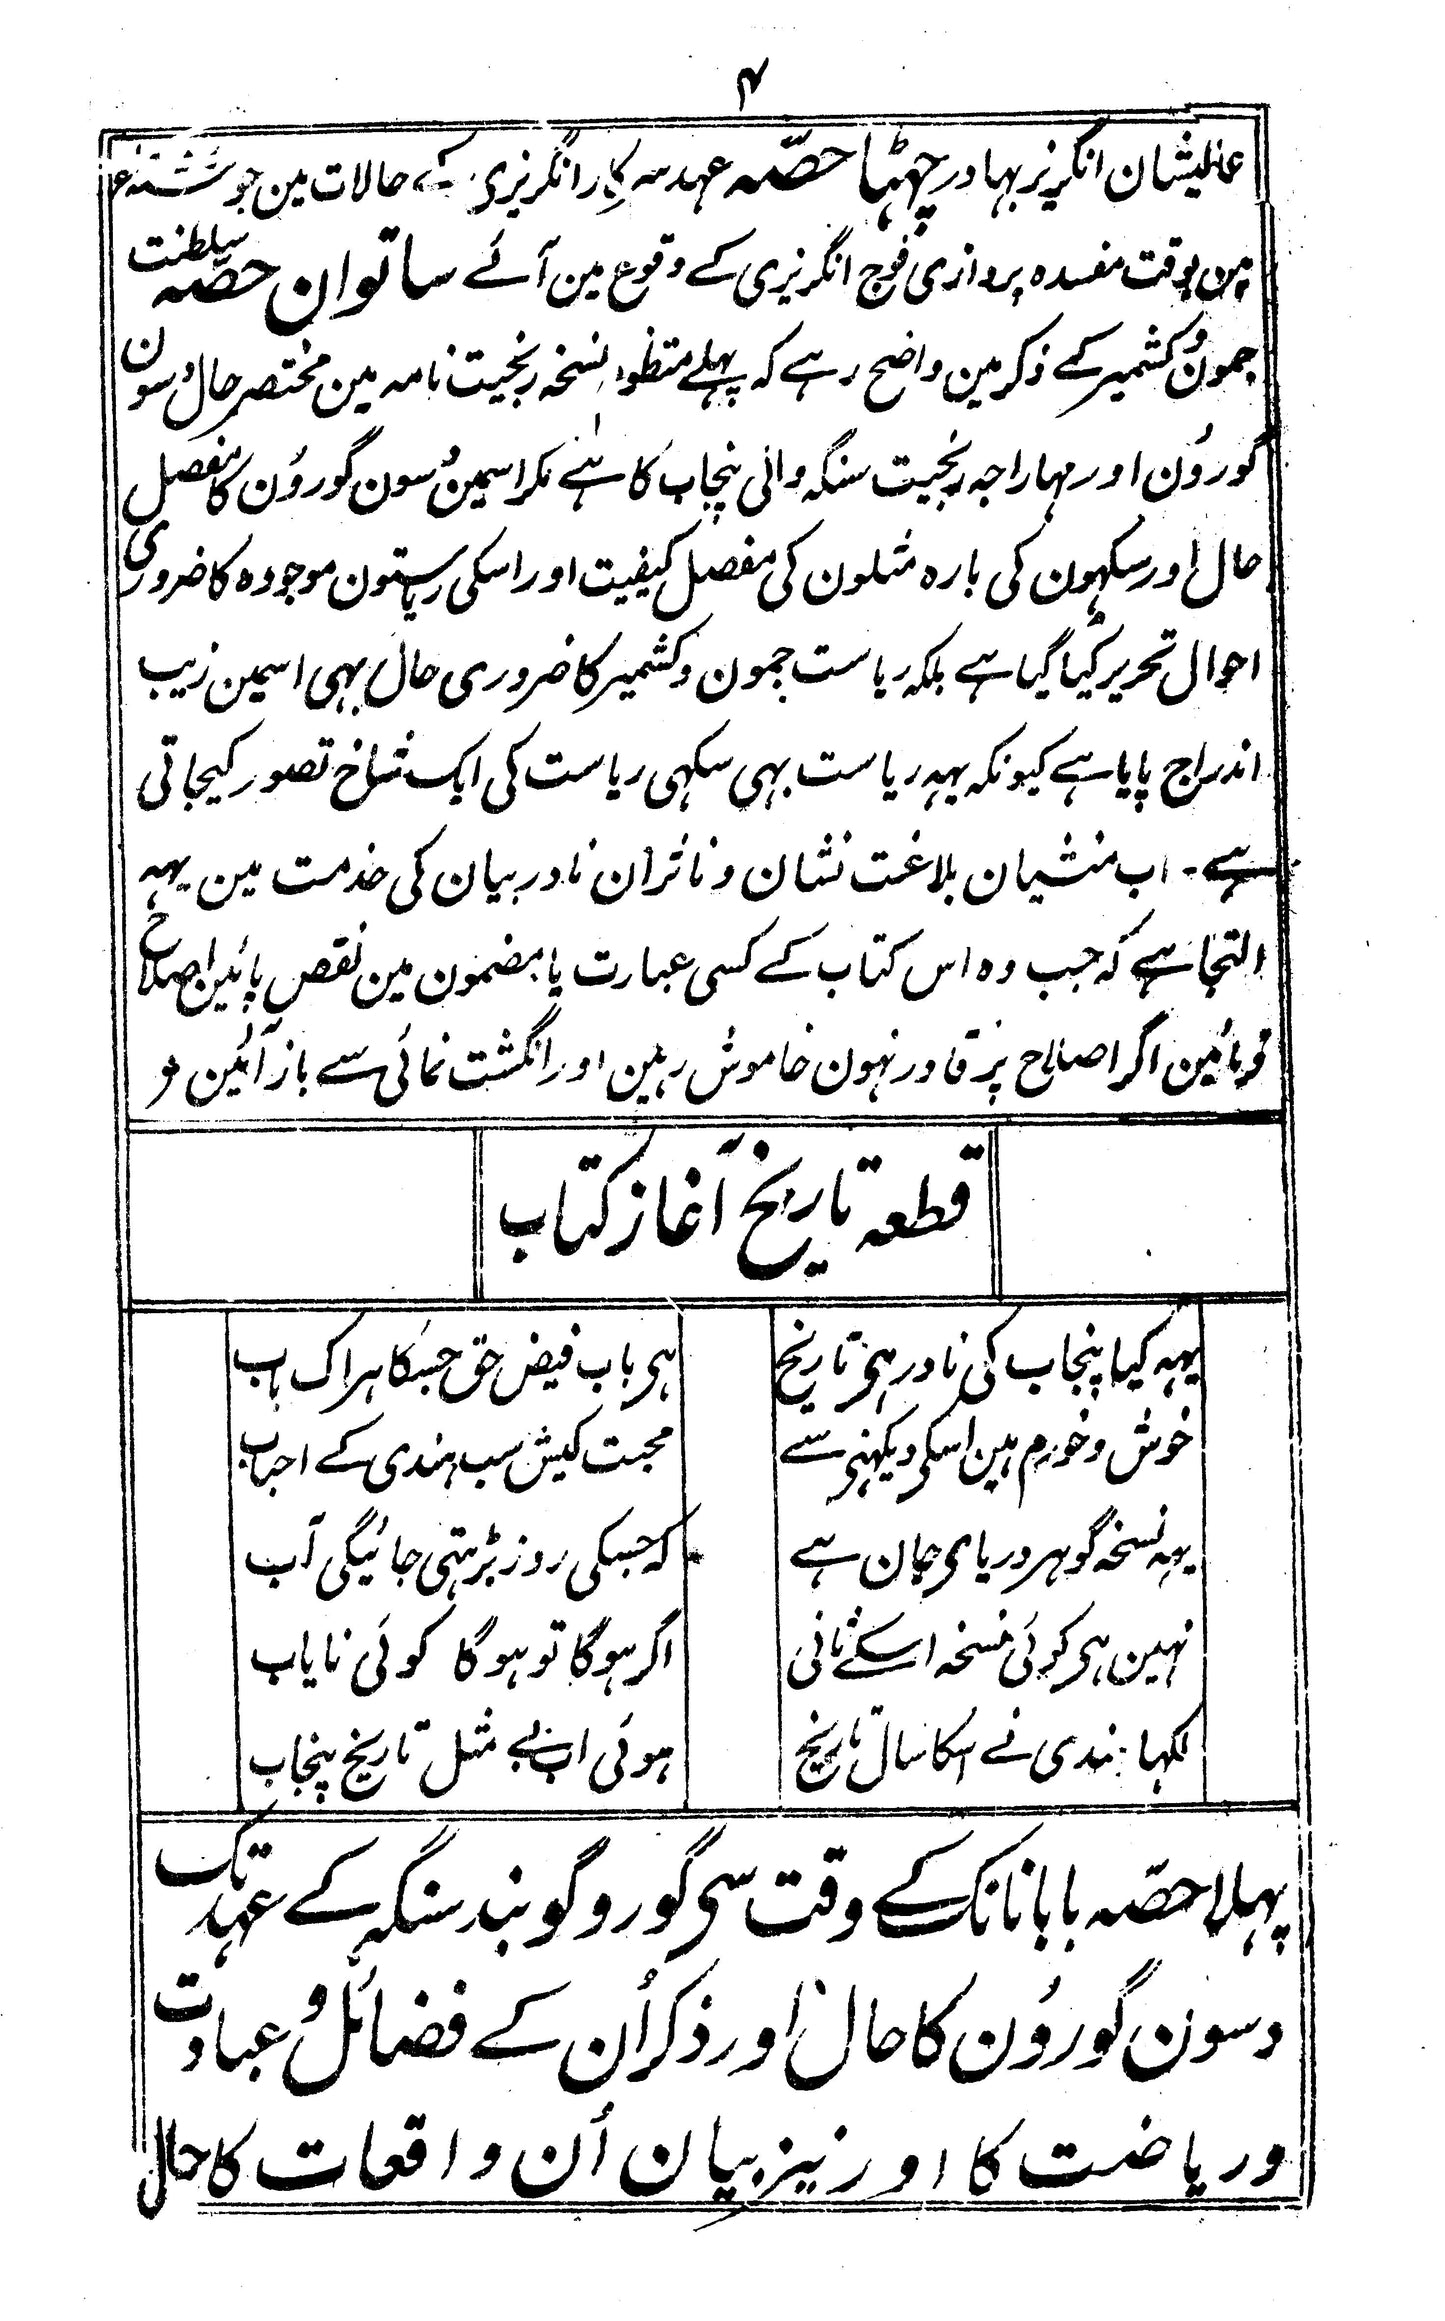 ۴
عالیشان انگریز بہادر چہٹا حصّہ عہد سرکار انگریزی کے حالات مین جو
مین بوقت مفسدہ پردازی فوج انگریزی کے وقوع مین آئے ساتوان حصّہ سلطنت
جمون و کشمیر کے ذکر مین واضح رہے کہ پہلے منظوم نسخہ رنجیت نامہ مین مختصر حال دسون
گورؤن اور مہاراجہ رنجیت سنگہ والی پنجاب کا ہے مگر اسمین دسون گورؤن کا مفصل
حال اور سکہون کی بارہ مثلون کی مفصل کیفیت اور اسکی ریاستون موجودہ کا ضروری
احوال تحریر کیا گیا ہے بلکہ ریاست جمون و کشمیر کا ضروری حال بہی اسمین زیب
اندراج پایا ہے کیونکہ یہہ ریاست بہی سکہی ریاست کی ایک شاخ تصور کیجاتی
ہے۔ اب منشیان بلاغت نشان و ناثران نادر بیان کی خدمت مین یہہ
التجا ہے کہ جب وہ اس کتاب کے کسی عبارت یا مضمون مین نقص پائین اصلاح
فرمائین اگر اصلاح پر قادر نہون خاموش رہین اور انگشت نمائی سے باز آئین
قطعہ تاریخ آغاز کتاب
یہہ کیا پنجاب کی نادر ہی تاریخ ہی باب فیض حق جسکا ہر اک باب
خوش و خورم ہین اسکی دیکہنی سے محبت کیش سب ہندی کے احباب
یہہ نسخہ گوہر دریای جان ہے کہ جسکی روز بڑہتی جائیگی آب
نہین ہی کوئی نسخہ اسکے ثانی اگر ہوگا تو ہوگا کوئی نایاب
لکہا ہندی نے اسکا سال تاریخ ہوئی اب بے مثل تاریخ پنجاب
پہلا حصّہ بابا نانک کے وقت سی گورو گوبند سنگہ کے عہد تک
دسون گورؤن کا حال اور ذکر اُن کے فضائل و عبادت
و ریاضت کا اور نیز بیان اُن واقعات کا حال